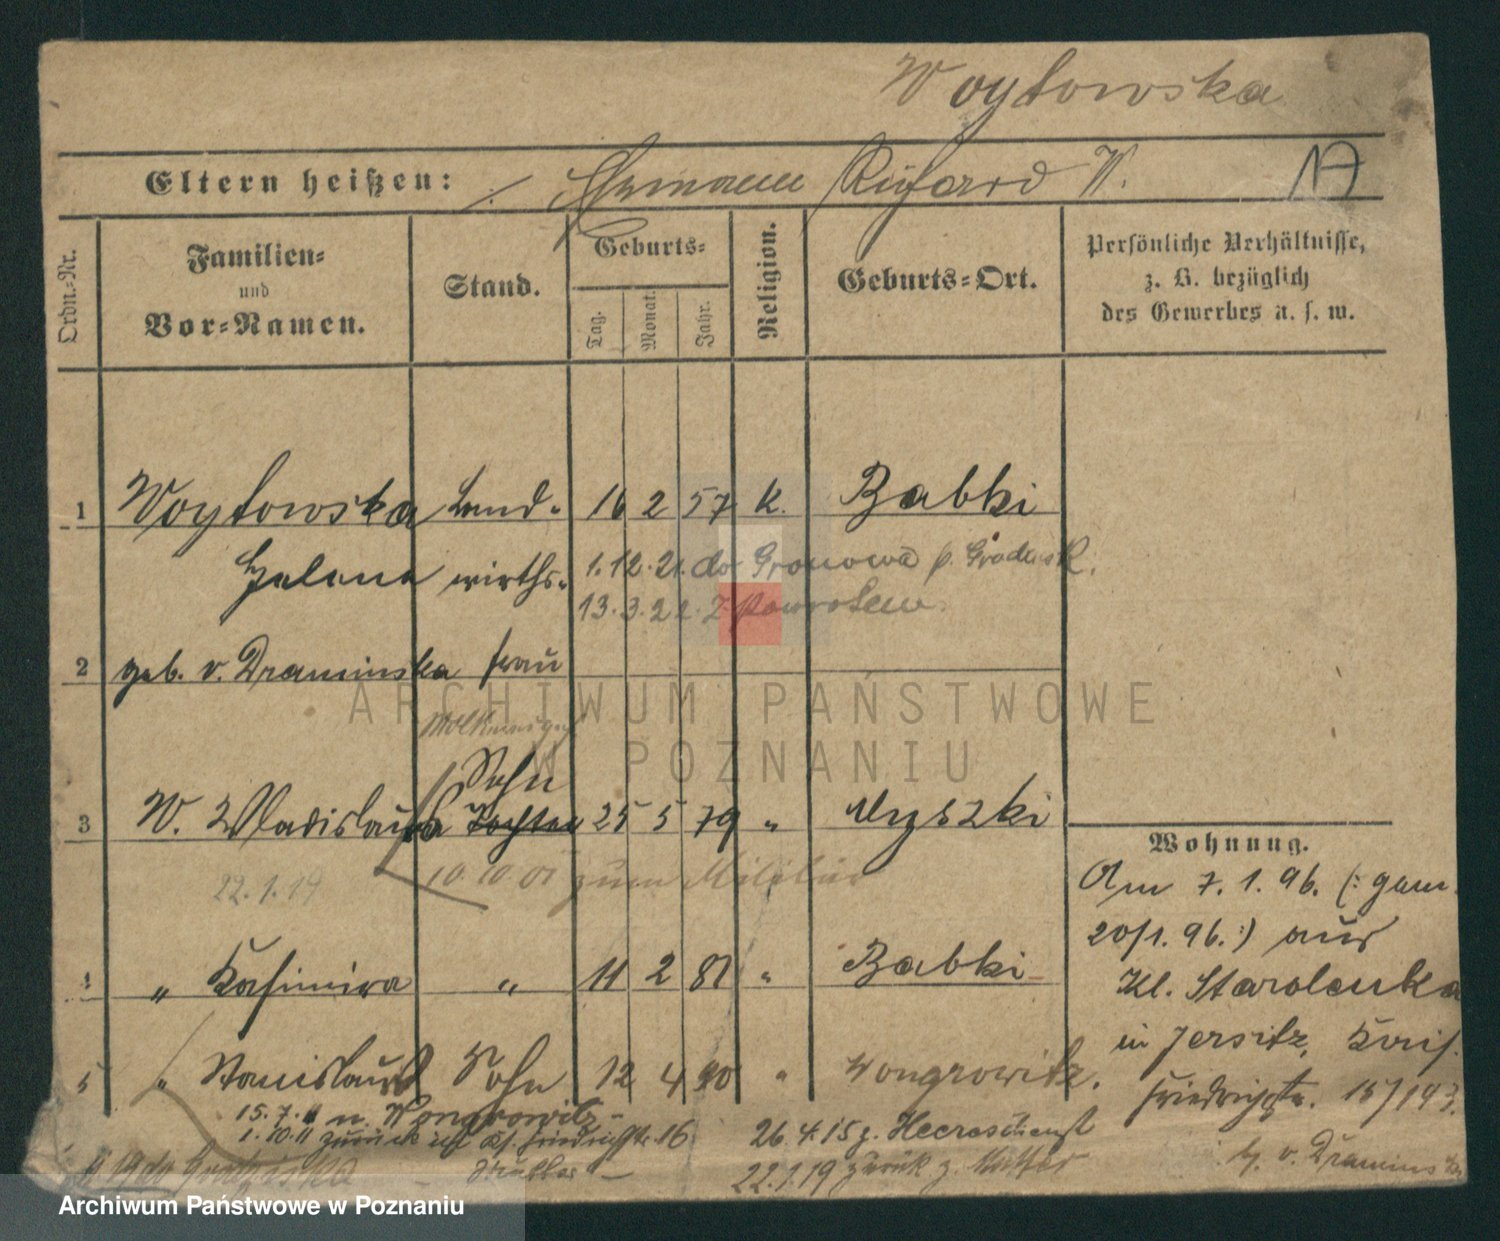 Woytowska
Eltern heißen: Hermann Richard W. 17
Ordn.-Nr.
Familien-
und
Vor-Namen.
Stand.
Geburts-
Tag.
Monat.
Jahr.
Religion.
Geburts-Ort.
Persönliche Verhältnisse,
z. B. bezüglich
des Gewerbes u. s. w.
1 Woytowska Land- 16 2 57 k. Babki
Helena wirths- 1.12.21. do Gronowa p.
13.3.22. z powrotem
2 geb. v. Draminska frau
ARCHIWUM PAŃSTWOWE
W POZNANIU
Sohn
3 W. Wladislaus Tochter 25 5 79 " Wyszki
22.1.19 10.10.01 zum Militär
4 " Kasimira " 11 2 81 " Babki
5 " Stanislaus Sohn 12 4 90 " Wongrowitz.
15.7.11 n. Wongrowitz-
1.10.11 zurück Ks. Friedrichstr. 16
26.4.15 z. Heeresdienst
22.1.19 zurück z. Mutter
Wohnung.
Am 7.1.96. (: gem.
20/1.96.:) aus
Kl. Starolenka
in Jersitz,
Friedrichstr. 15/193.
v. Draminska
Archiwum Państwowe w Poznaniu